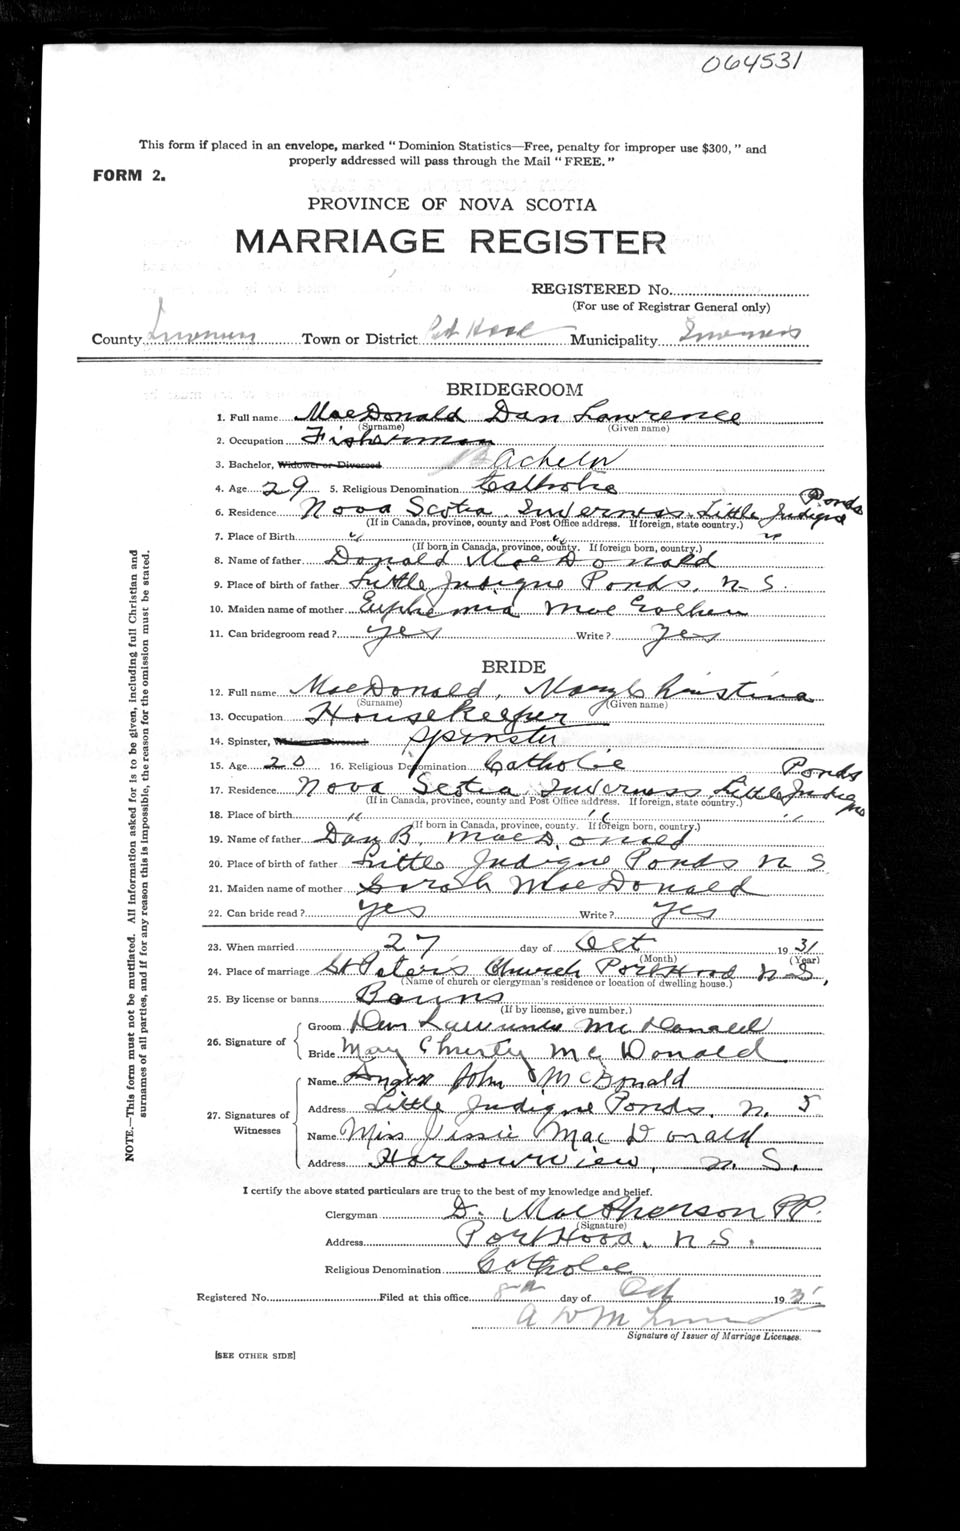 064531
This form if placed in an envelope, marked "Dominion Statistics—Free, penalty for improper use $300," and
properly addressed will pass through the Mail "FREE."
FORM 2.
PROVINCE OF NOVA SCOTIA
MARRIAGE REGISTER
REGISTERED No.
(For use of Registrar General only)
County Town or District Port Hood Municipality Inverness
BRIDEGROOM
1. Full name MacDonald Dan Lawrence
(Surname) (Given name)
2. Occupation Fisherman
3. Bachelor, Widower or Divorced Bachelor
4. Age 29 5. Religious Denomination Catholic
6. Residence Nova Scotia Inverness Little Judique Ponds
(If in Canada, province, county and Post Office address. If foreign, state country.)
7. Place of Birth " " "
(If born in Canada, province, county. If foreign born, country.)
8. Name of father Donald MacDonald
9. Place of birth of father Little Judique Ponds, N-S.
10. Maiden name of mother Euphemia Mac
11. Can bridegroom read? yes Write? yes
BRIDE
12. Full name MacDonald, Mary Christina
(Surname) (Given name)
13. Occupation Housekeeper
14. Spinster, Widow or Divorced Spinster
15. Age 20 16. Religious Denomination Catholic
17. Residence Nova Scotia Inverness Little Judique Ponds
(If in Canada, province, county and Post Office address. If foreign, state country.)
18. Place of birth " " "
(If born in Canada, province, county. If foreign born, country.)
19. Name of father Dan B. MacDonald
20. Place of birth of father Little Judique Ponds N S
21. Maiden name of mother Sarah MacDonald
22. Can bride read? yes Write? yes
23. When married 27 day of Oct 1931
(Month) (Year)
24. Place of marriage St Peter's Church Port Hood N-S,
(Name of church or clergyman's residence or location of dwelling house.)
25. By license or banns Banns
(If by license, give number.)
26. Signature of
Groom Dan Lawrence McDonald
Bride May Christy Mc Donald
27. Signatures of Witnesses
Name Angus John McDonald
Address Little Judique Ponds, N. S
Name Miss Jessie MacDonald
Address Harbourview, N. S.
I certify the above stated particulars are true to the best of my knowledge and belief.
Clergyman D. MacPherson P.P.
(Signature)
Address Port Hood, N.S.
Religious Denomination Catholic
Registered No. Filed at this office day of 193
A W M
Signature of Issuer of Marriage Licenses.
[SEE OTHER SIDE]
NOTE.—This form must not be mutilated. All information asked for is to be given, including full Christian and
surnames of all parties, and if for any reason this is impossible, the reason for the omission must be stated.